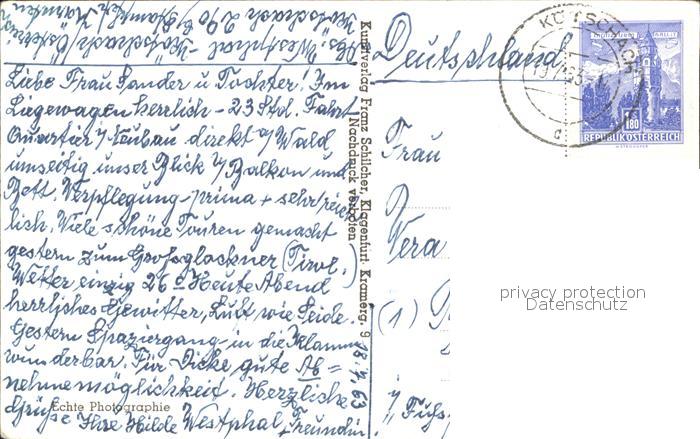 Abs. Westphal Kötschach
Kötschach 290
Liebe Frau Sander u Tochter! Im
Liegewagen herrlich – 23 Std. Fahrt
Quartier i/ Neubau direkt a/ Wald
umseitig unser Blick v/ Balkon und
Bett. Verpflegung prima + sehr reich
lich. Viele schöne Touren gemacht
gestern zum Großglockner (Tirol.)
Wetter einzig 26° Heute Abend
herrliches Gewitter, Luft wie Seide.
Gestern Spaziergang in die Klamm
wunderbar. Für Dicke gute Ab=
nehmemöglichkeit. Herzliche
Grüße Ihre Hilde Westphal Freundin
18.7.63
Echte Photographie
Kunstverlag Franz Schilcher, Klagenfurt, Kramerg. 9
Nachdruck verboten
Deutschland
Frau
Vera
(1)
KÖTSCHACH
1.80
REPUBLIK ÖSTERREICH
privacy protection
Datenschutz